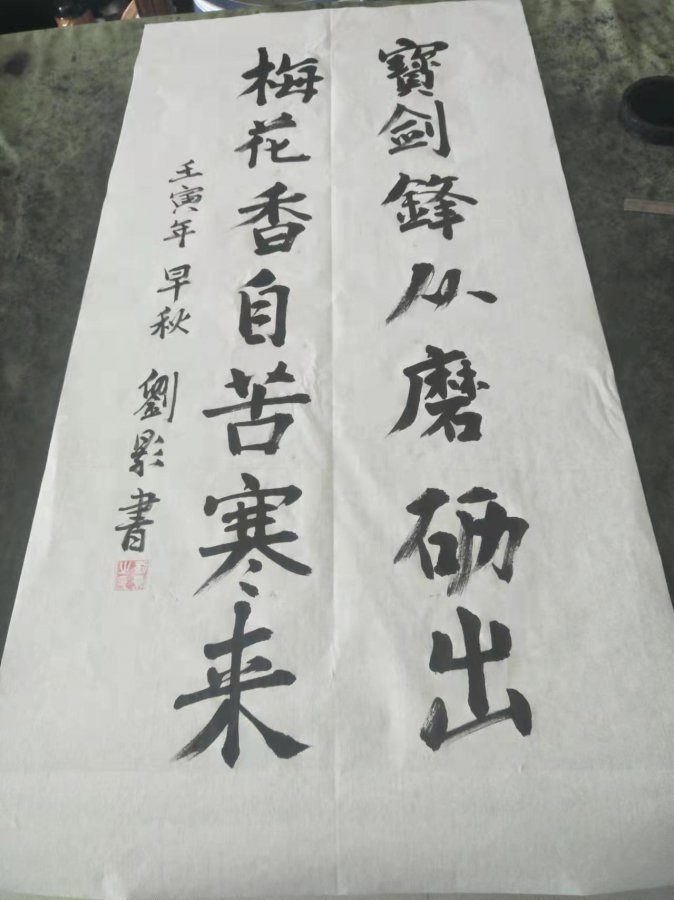 寶劍鋒从磨砺出
梅花香自苦寒来
壬寅年早秋劉影書